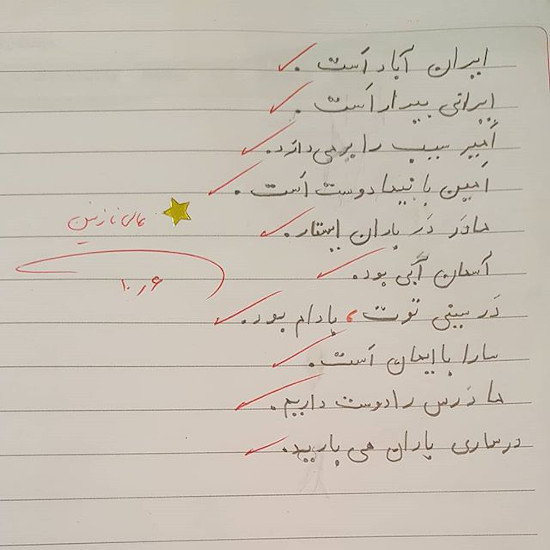 ایران آباد اَست .
ایرانی بیدار اَست .
اَمیر سبب را بر می دارد .
اَمین با نیما دوست اَست .
مادَر دَر باران ایستاد .
آسمان آبی بود .
دَر سینی توت ، بادام بود .
سارا با ایمان اَست .
ما دَرس را دوست داریم .
در ساری باران می بارید .
عالی نازنین